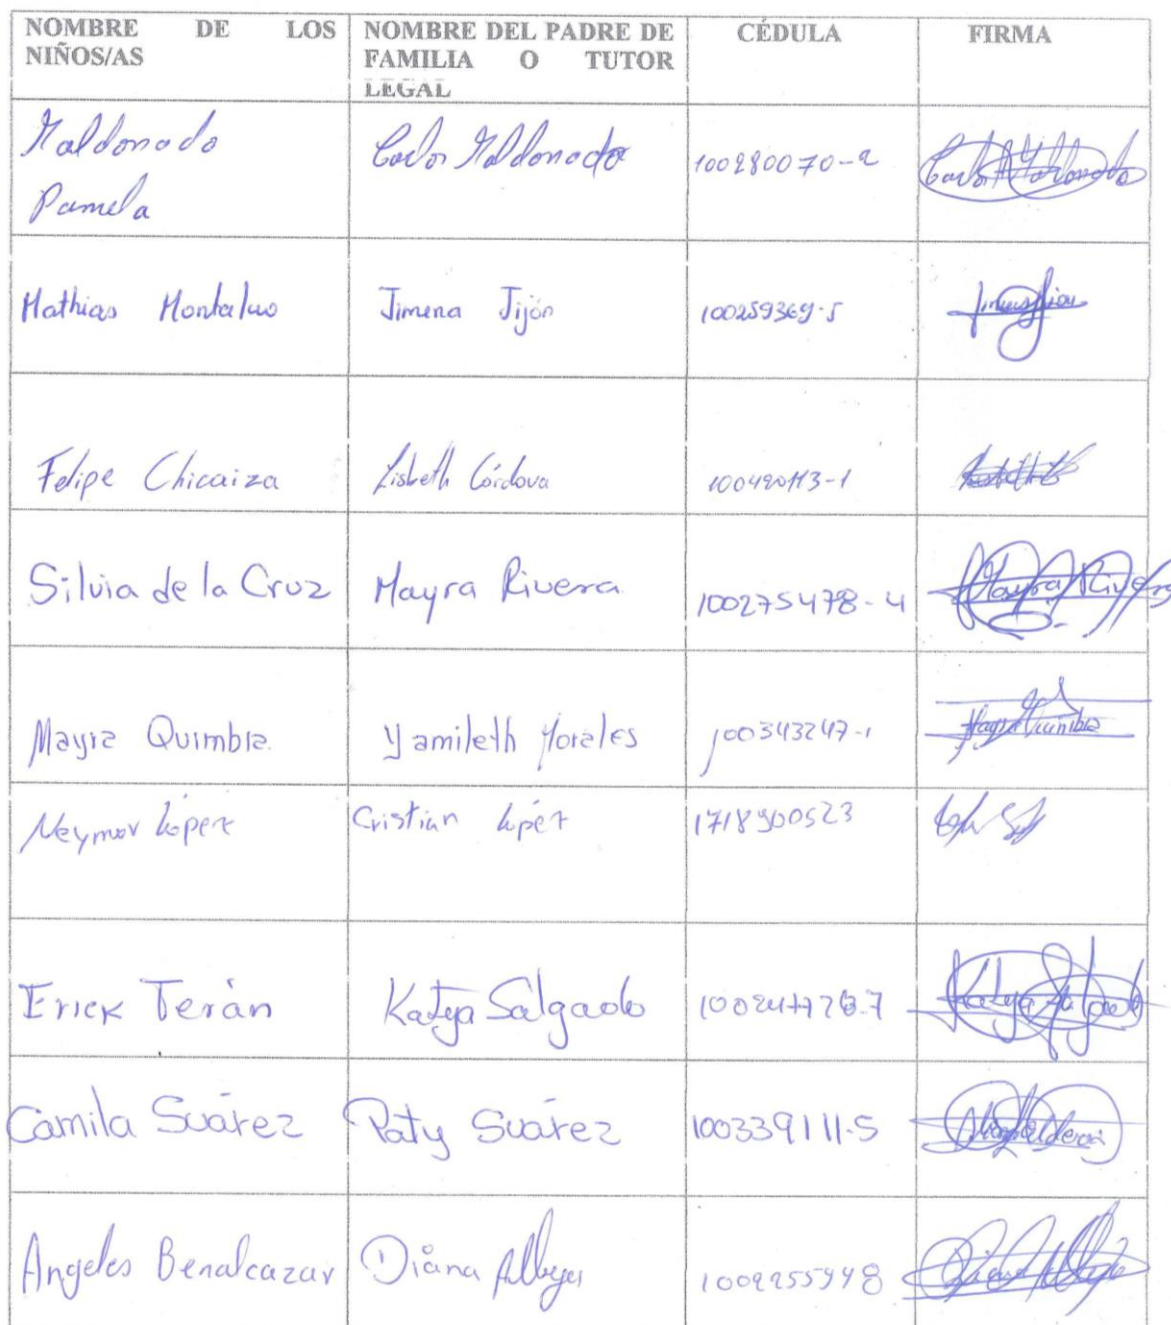 NOMBRE DE LOS NIÑOS/AS
NOMBRE DEL PADRE DE FAMILIA O TUTOR LEGAL
CÉDULA
FIRMA
Maldonado Pamela
Carlos Maldonado
100280070-2
Carlos Maldonado
Mathias Montalvo
Jimena Jijón
100259369-5
Felipe Chicaiza
Lisbeth Córdova
Silvia de la Cruz
Mayra Rivera
100275478-4
Mayra Rivera
Mayra Quimbia
Yamileth Morales
100343247-1
Mayra Quimbia
Neymar López
Cristian López
Erick Terán
Katya Salgado
Katya Salgado
Camila Suárez
Paty Suárez
100339111-5
Angeles Benalcazar
Diana